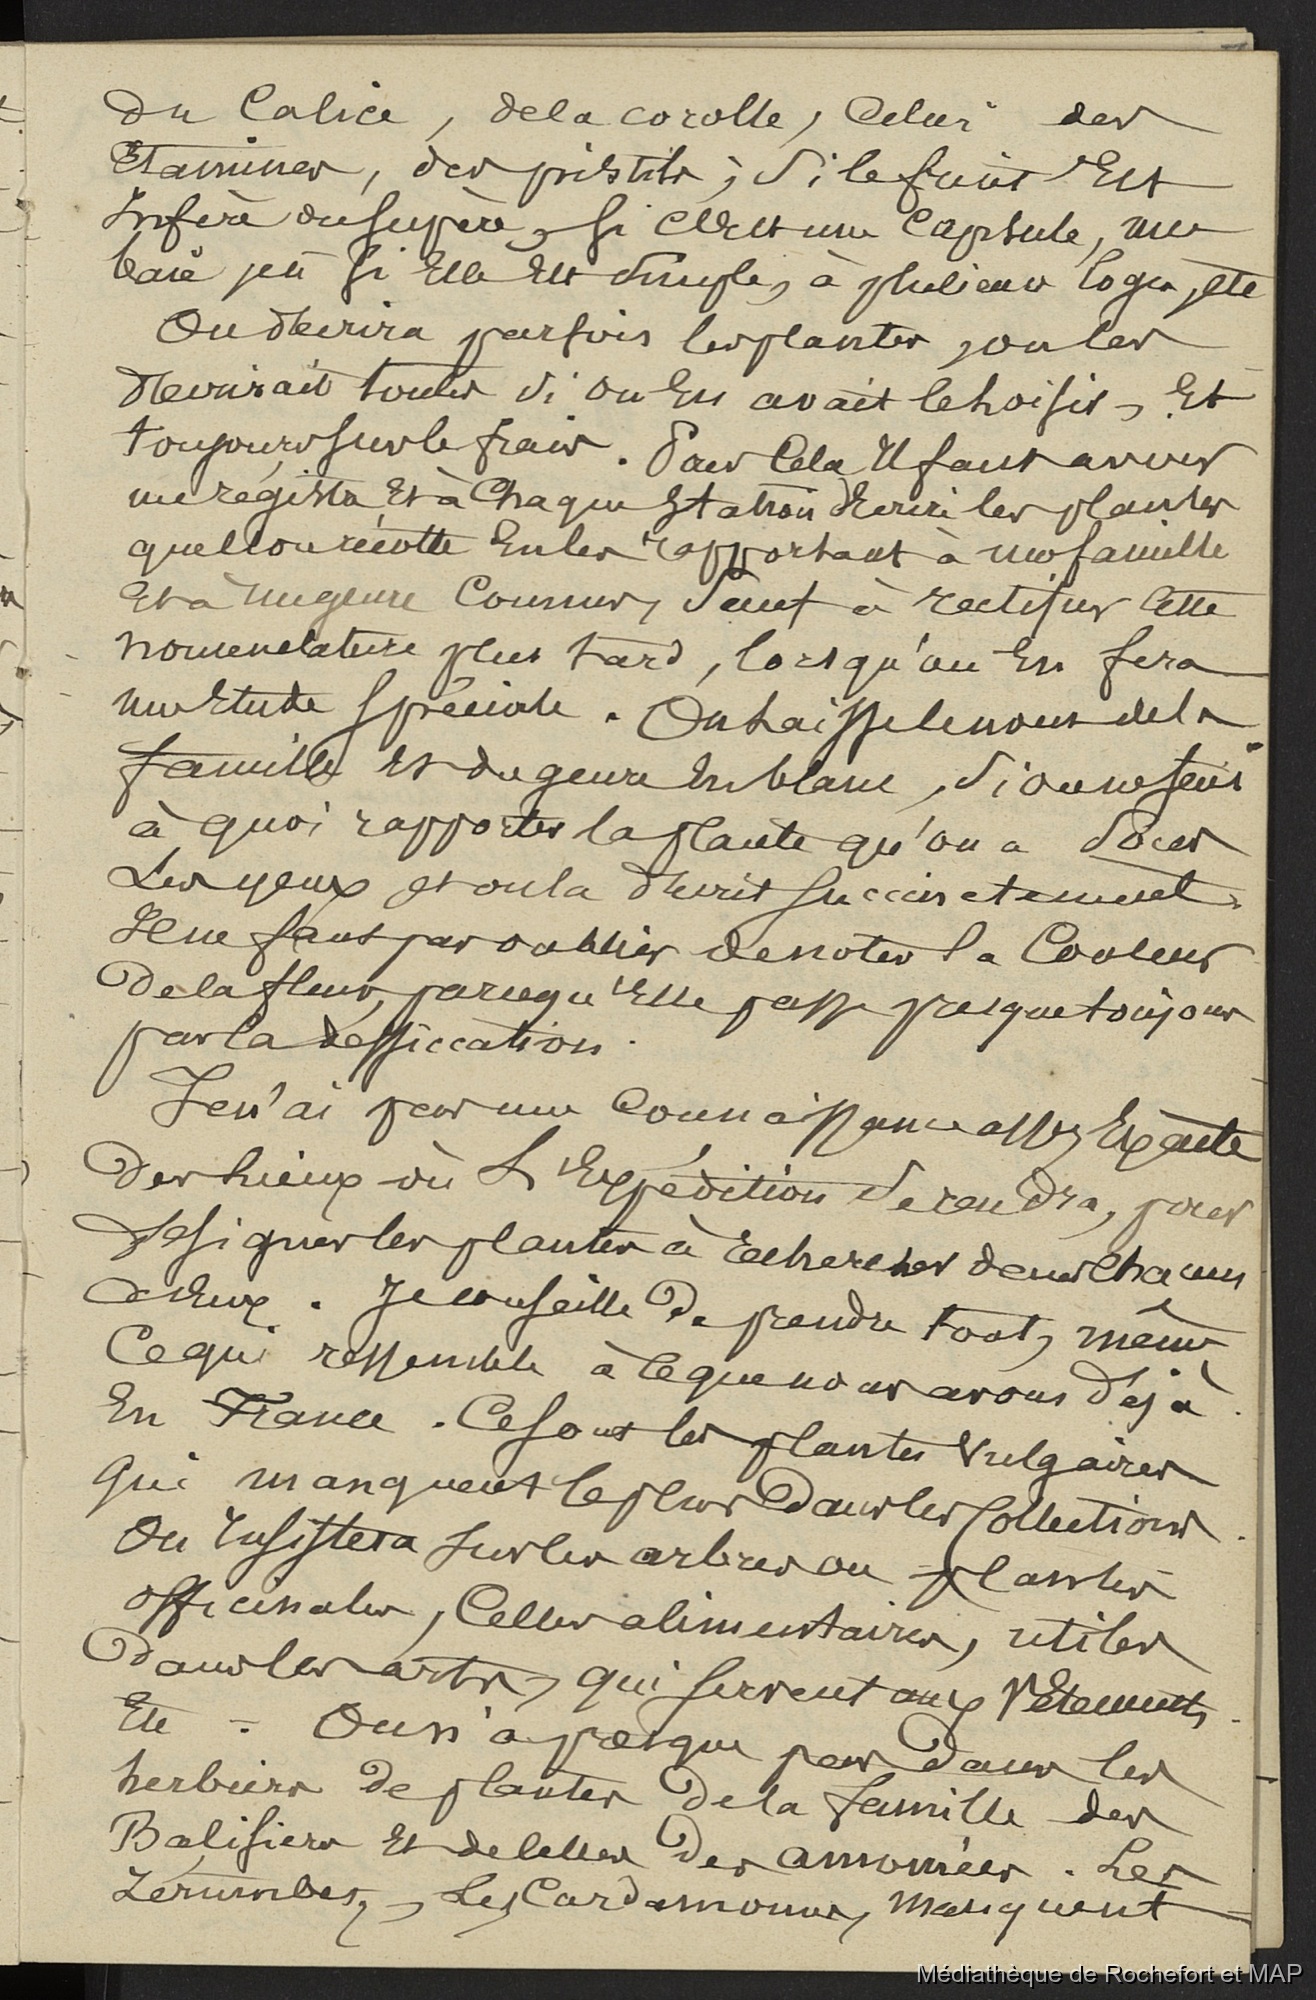 du Calice, de la corolle, Celui des
Etamines, des pistils; si le fruit Est
Infère ou supère, si C'est une Capsule, une
baie, si Elle Est simple, à plusieurs loges, etc
On décrira parfois les plantes, on les
décrirait toutes si on En avait le loisir, Et
toujours sur le frais. Pour Cela Il faut avoir
un registre Et à Chaque Station décrire les plantes
que l'on récolte En les rapportant à une famille
Et à un genre Connus, Sauf à rectifier Cette
nomenclature plus tard, lorsqu'on En fera
une Etude Spéciale. On laisse le nom de la
famille Et du genre En blanc, si on ne sait
à quoi rapporter la plante qu'on a sous
Les yeux, et on la décrit succinctement.
Il ne faut pas oublier de noter la Couleur
de la fleur, parcequ'Elle passe presque toujours
par la dessiccation.
Je n'ai pas une Connaissance assez Exacte
Des Lieux où L'Expédition se rendra, pour
désigner les plantes à rechercher dans chacun
d'Eux. Je conseille De prendre tout, même
Ce qui ressemble à Ce que nous avons Déjà
En France. Ce sont les plantes Vulgaires
qui manquent le plus Dans les Collections.
On Insistera sur les arbres ou plantes
officinales, Celles alimentaires, utiles
Dans les arts, qui servent aux Vêtements
Etc. On n'a presque pas Dans les
herbiers De plantes De la famille des
Balisiers Et de Celles Des amomées. Les
Zerumbet, Les Cardamomes, manquent
Médiathèque de Rochefort et MAP